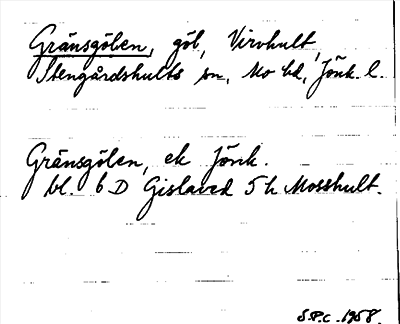 Gränsgölen, göl, Virvhult,
Stengårdshults sn, Mo hd, Jönk. l.
Gränsgölen, ek Jönk.
bl. 6 D Gislaved 5 h Mosshult.
S.P.C. 1958.